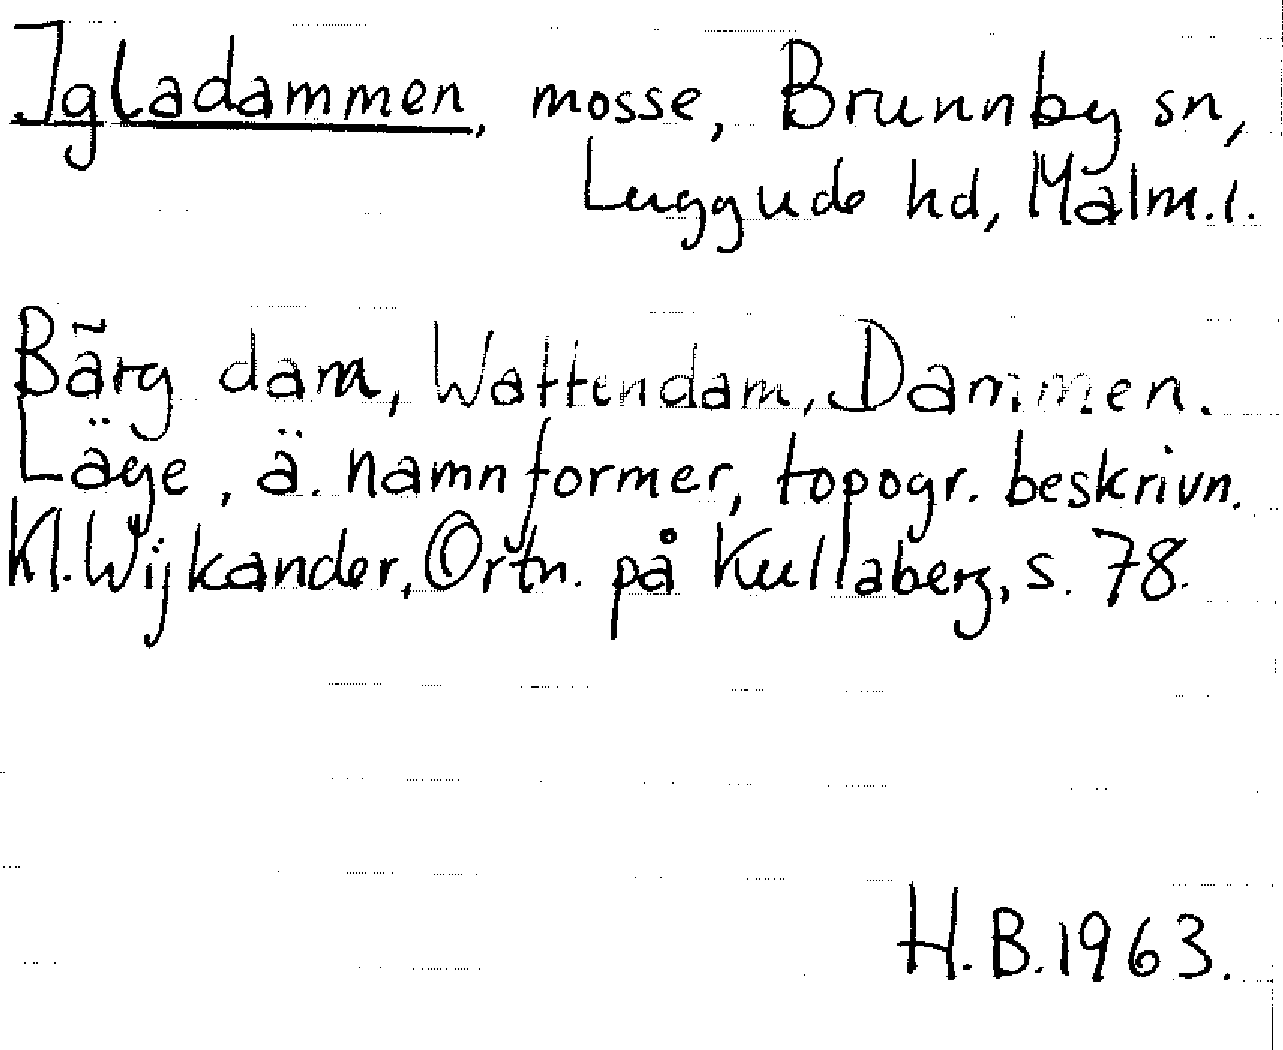 Igladammen, mosse, Brunnby sn,
Luggude hd, Malm.l.
Bärg dam, Wattendam, Dammen.
Läge, ä. namnformer, topogr. beskrivn.
Kl. Wijkander, Ortn. på Kullaberg, s. 78.
H.B. 1963.